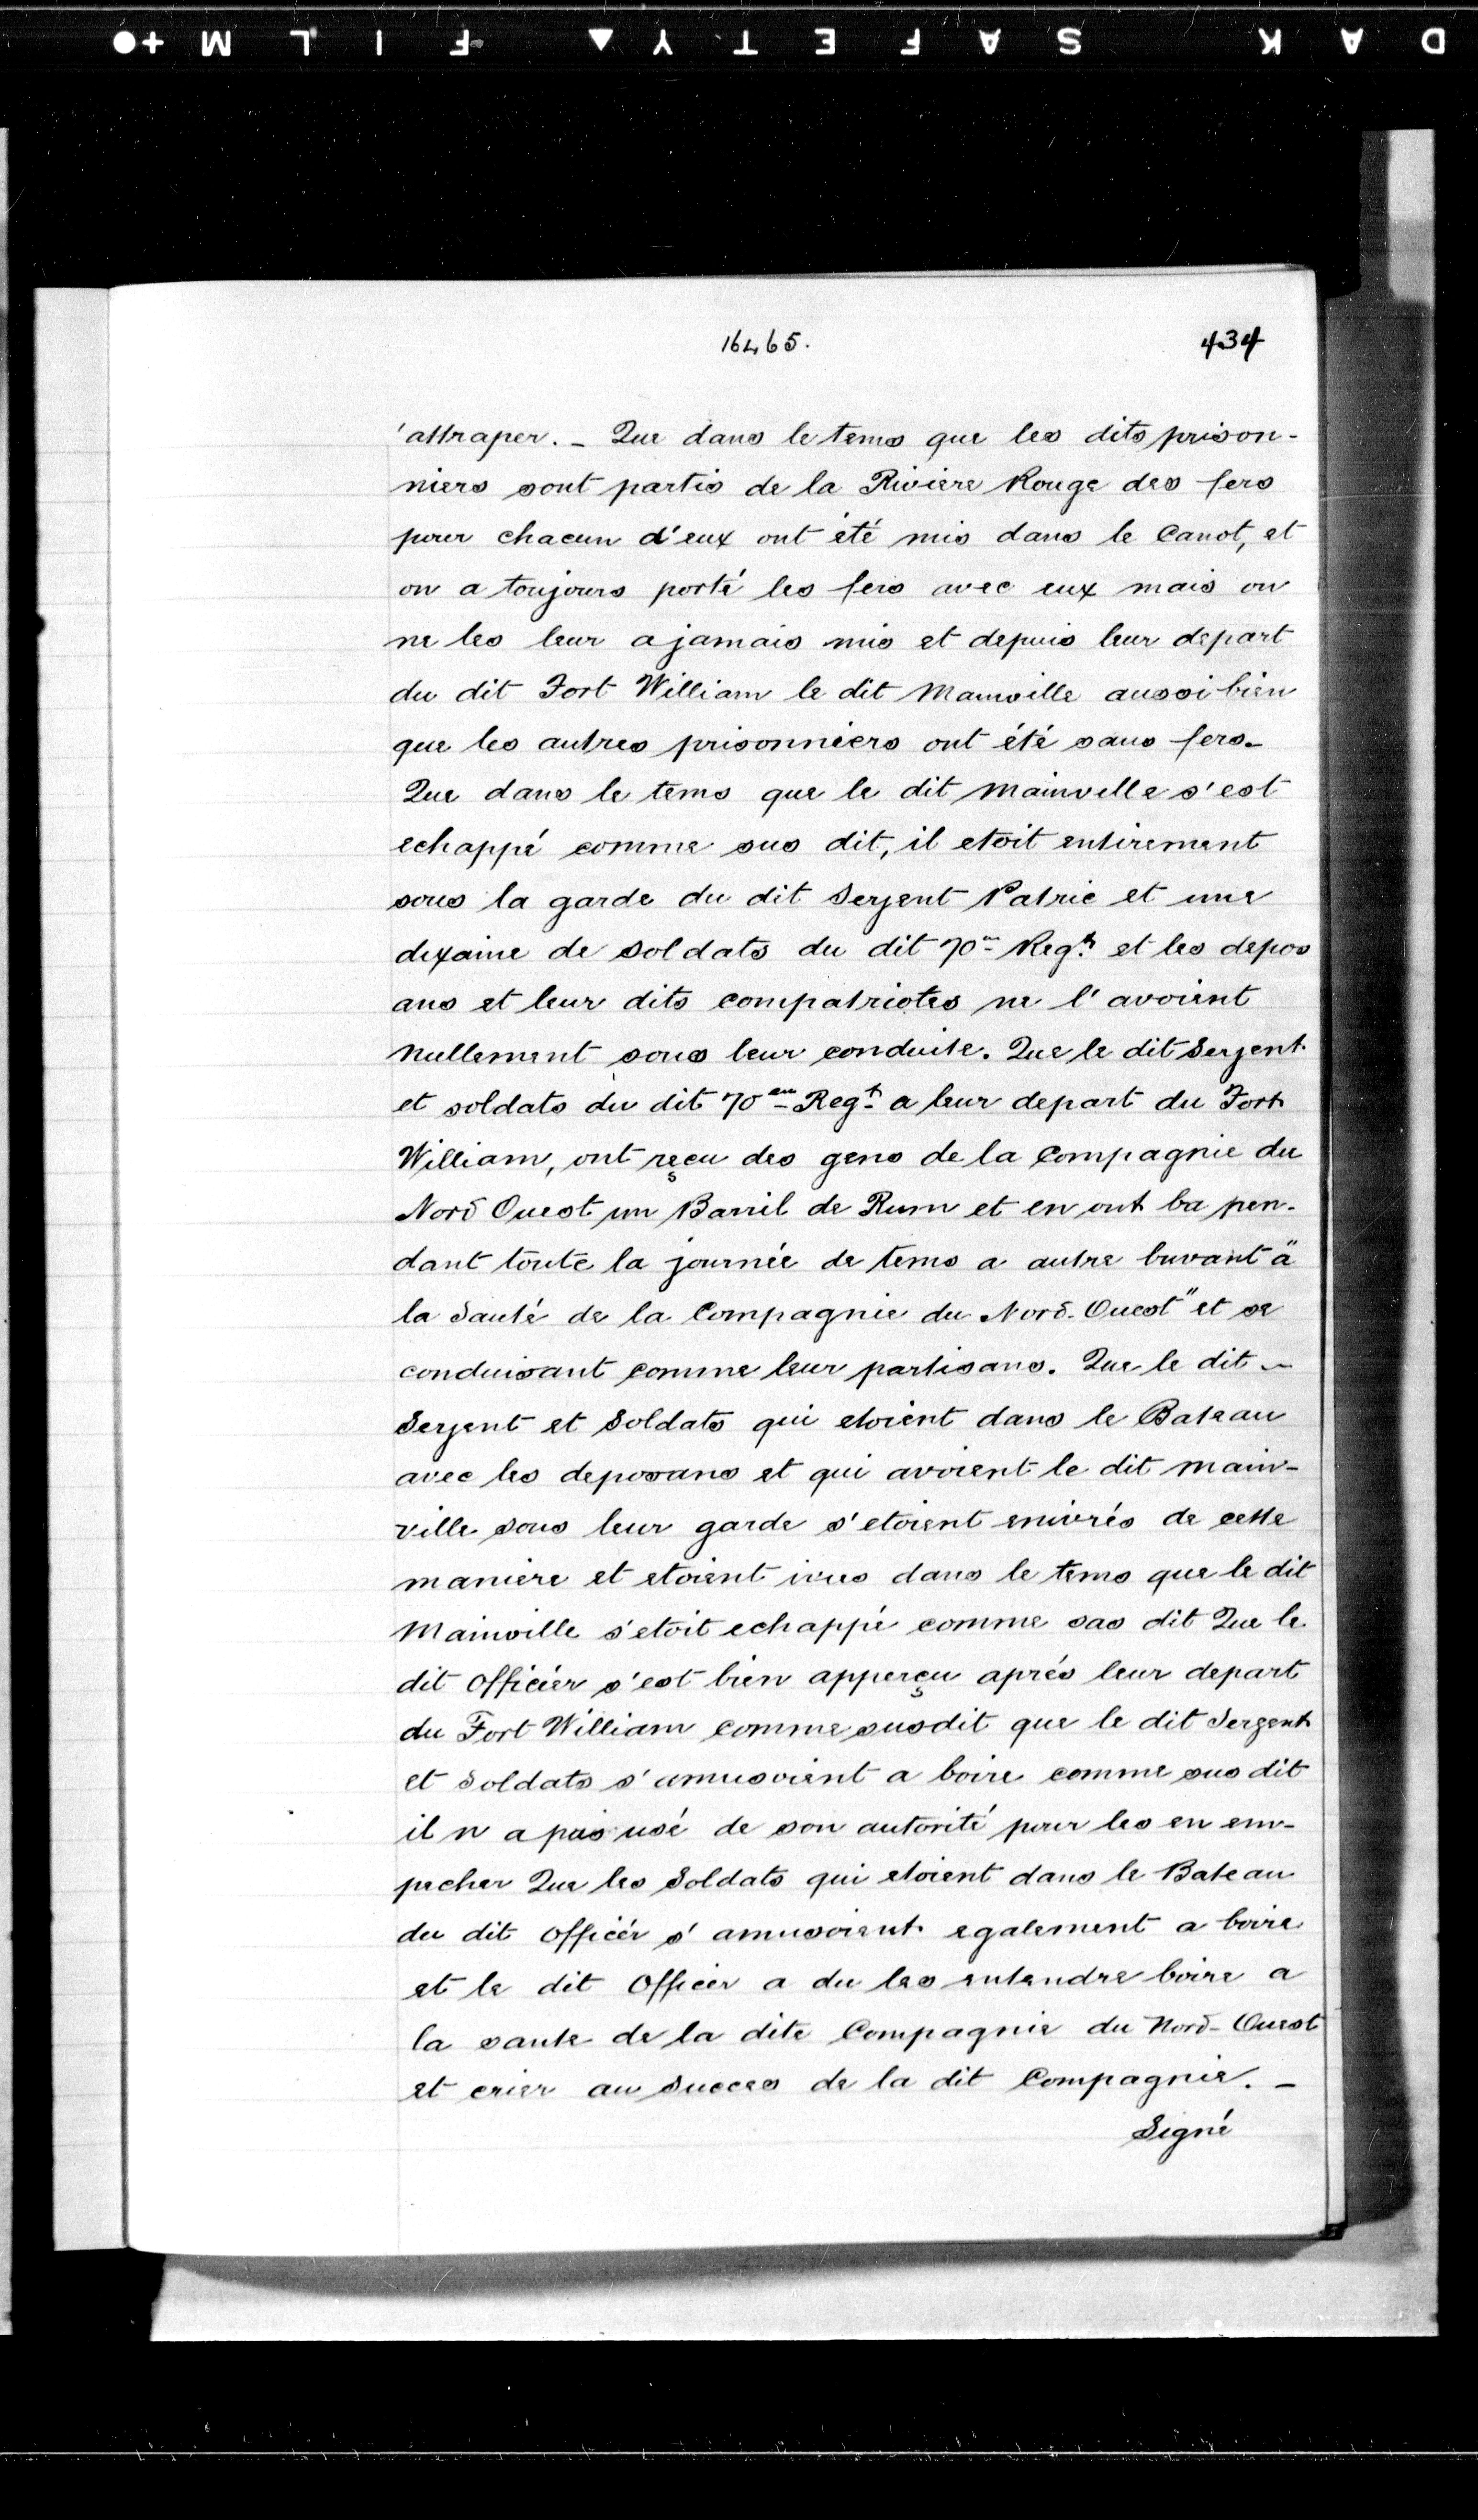 DAK SAFETY FILM
16465.
434
'attraper. _ Que dans le tems que les dits prison-
niers sont partis de la Riviere Rouge des fers
pour chacun d'eux ont été mis dans le Canot, et
on a toujours porté les fers avec eux mais on
ne les leur a jamais mis et depuis leur depart
du dit Fort William le dit Mainville aussi bien
que les autres prisonniers ont été sans fers._
Que dans le tems que le dit Mainville s'est
echappé comme sus dit, il etoit entirement
sous la garde du dit Serjent Patric et une
dixaine de Soldats du dit 70me Regt. et les depos
ans et leur dits compatriotes ne l'avoient
Nullement sous leur conduite. Que le dit Serjent
et soldats du dit 70em Regt a leur depart du Fort
William, ont reçu des gens de la Compagnie du
Nord Ouest un Barril de Rum et en ont bu pen-
dant toute la journée de tems a autre buvant "a
la Santé de la Compagnie du Nord-Ouest" et se
conduisant comme leur partisans. Que le dit -
Serjent et Soldats qui etoient dans le Bateau
avec les deposans et qui avoient le dit Main-
ville sous leur garde s'etoient enivrés de cette
maniere et etoient ivres dans le tems que le dit
Mainville s'etoit echappé comme sus dit Que le
dit Officier s'est bien apperçu aprés leur depart
du Fort William comme susdit que le dit Sergent
et Soldats s'amusoient a boire comme sus dit
il n a pas usé de son autorité pour les en em-
pecher Que les Soldats qui etoient dans le Bateau
du dit Officér s'amusoient egalement a boire
et le dit Officer a du les entendre boire a
la sante de la dite Compagnie du Nord-Ouest
et crier au Succes de la dit Compagnie. _
Signé